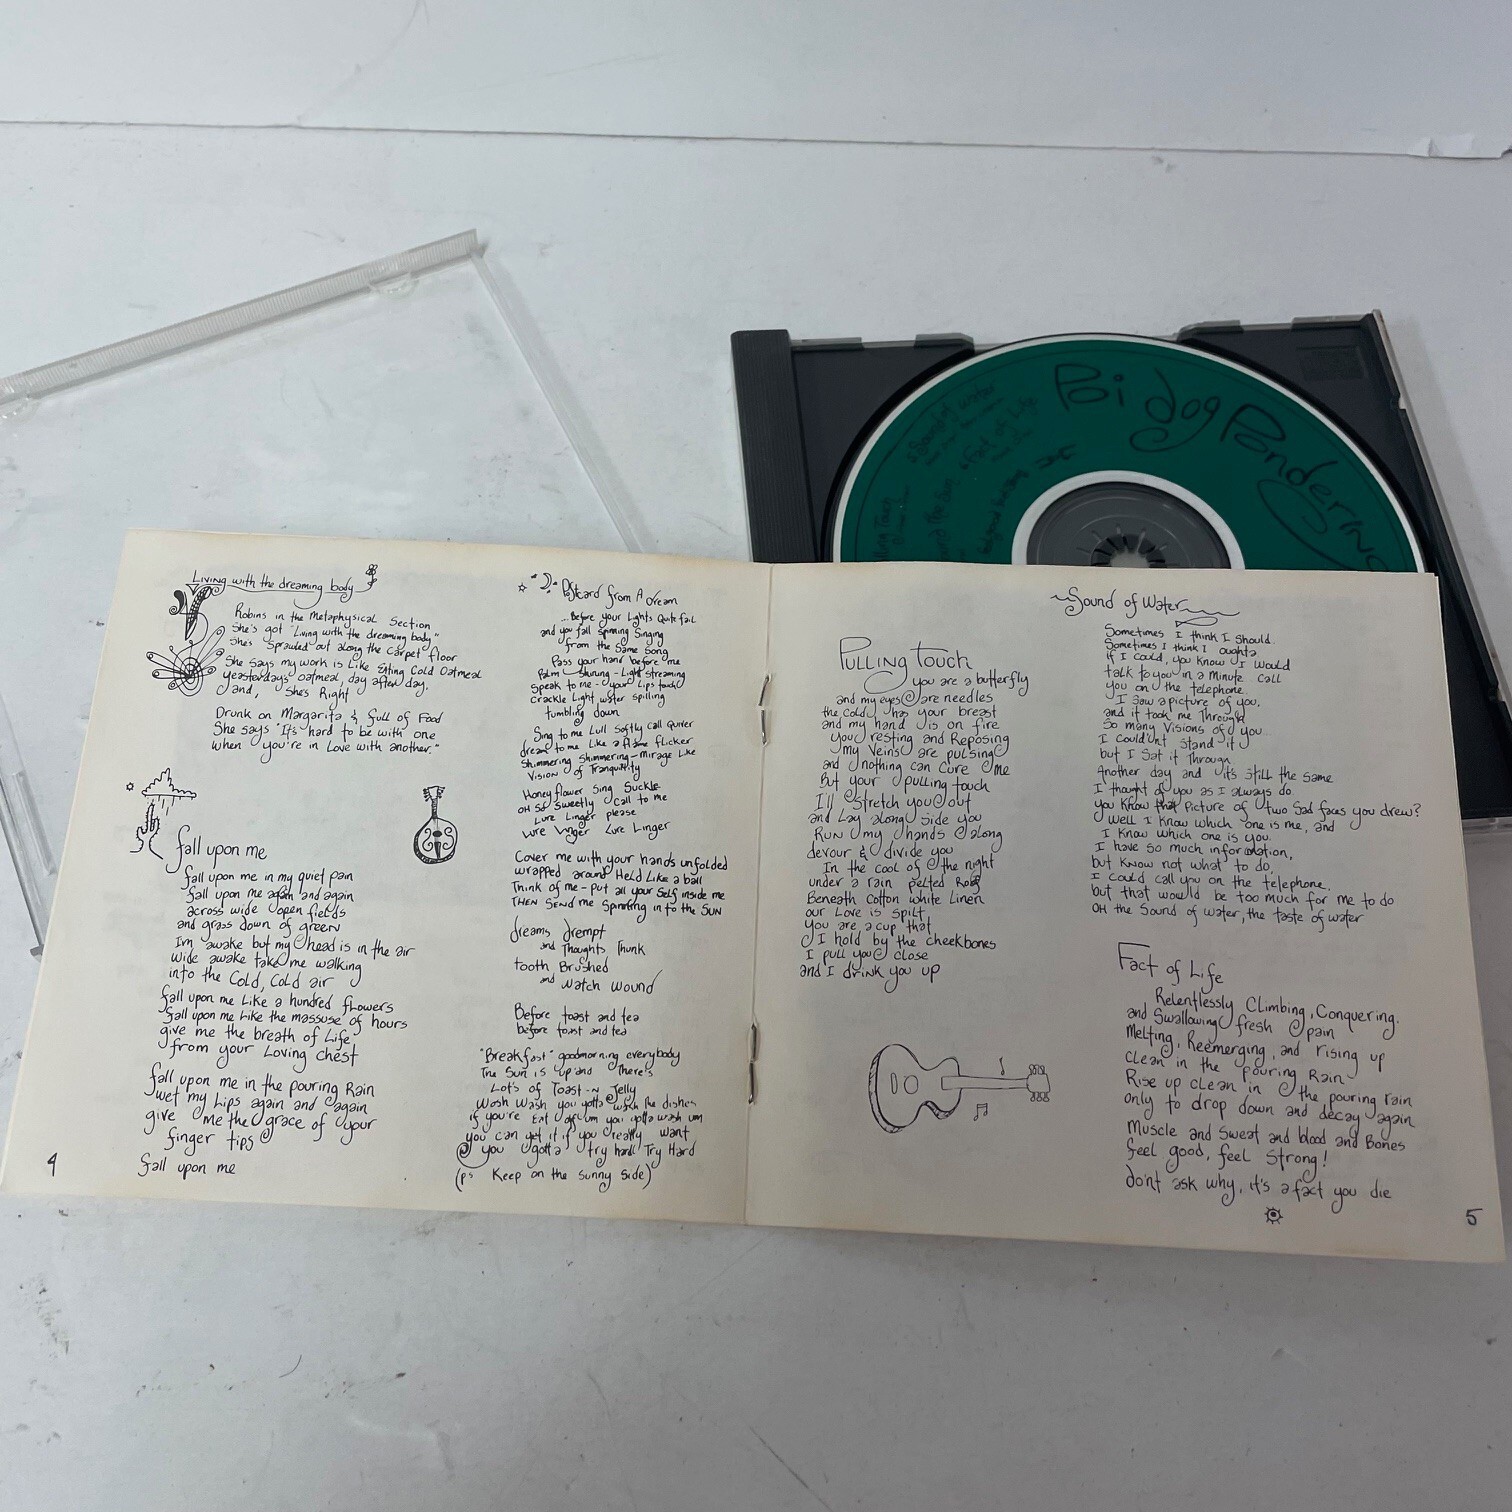 Poi dog Pondering
Sound of Water
Fact of Life
Living with the dreaming body
Robins in the Metaphysical Section
She's got "Living with the dreaming body"
She's Sprawled out along the carpet floor
She says my work is Like Eating Cold Oatmeal
yeasterdays oatmeal, day after day,
and, She's Right
Drunk on Margarita & full of Food
She says "It's hard to be with one
when you're in Love with another."
fall upon me
fall upon me in my quiet pain
fall upon me again and again
across wide open fields
and grass down of green
Im awake but my head is in the air
wide awake take me walking
into the Cold, Cold air
fall upon me Like a hundred flowers
fall upon me Like the massuse of hours
give me the breath of Life
from your Loving chest
fall upon me in the pouring Rain
wet my Lips again and again
give me the grace of your
finger tips
fall upon me
4
Postcard from A dream
...Before your Lights Quite fail
and you fall Spinning Singing
from the Same Song
Pass your hand before me
Palm - Shining - Light Streaming
Speak to me - your Lips touch
Crackle Light water Spilling
tumbling down
Sing to me Lull Softly call Quiver
dream to me Like a flame flicker
Shimmering Shimmering - Mirage Like
Vision of Tranquility
Honey flower Sing Suckle
OH So Sweetly Call to me
Lure Linger please
Lure Linger Lure Linger
Cover me with your hands unfolded
wrapped around Held Like a ball
Think of me - put all your Self inside me
THEN SEND me Spinning in to the SUN
dreams drempt
and Thoughts Thunk
tooth Brushed
and watch wound
Before toast and tea
before toast and tea
"Breakfast" goodmorning everybody
The Sun is up and There's
Lot's of Toast-n Jelly
Wash Wash you gotta wash the dishes
if you're Eat off-um you gotta wash um
you can get it if you really want
you gotta try hard Try Hard
(ps Keep on the Sunny Side)
Pulling touch
you are a butterfly
and my eyes are needles
the Cold has your breast
and my hand is on fire
your resting and Reposing
my Veins are pulsing
and nothing can cure me
But your pulling touch
I'll Stretch you out
and Lay along Side you
Run my hands along
devour & divide you
In the cool of the night
under a rain pelted Roof
Beneath Cotton white Linen
our Love is Spilt
You are a cup that
I hold by the cheekbones
I pull you close
and I drink you up
Sound of Water
Sometimes I think I Should
Sometimes I think I oughta
if I could, you know I would
talk to you in a minute call
you on the telephone.
I Saw a picture of you,
and it took me Through
So many Visions of you
I could'nt Stand it
but I Sat it Through
Another day and it's still the Same
I thought of you as I always do
you know that Picture of two Sad faces you drew?
well I know which one is me, and
I know which one is you.
I have So much information,
but know not what to do,
I could call you on the telephone,
but that would be too much for me to do
OH the Sound of water, the taste of water
Fact of Life
Relentlessly Climbing, Conquering.
and Swallowing fresh pain
Melting, Reemerging, and rising up
clean in the Pouring Rain
Rise up clean in the pouring rain
only to drop down and decay again
Muscle and Sweat and blood and Bones
feel good, feel Strong!
don't ask why, it's a fact you die
5